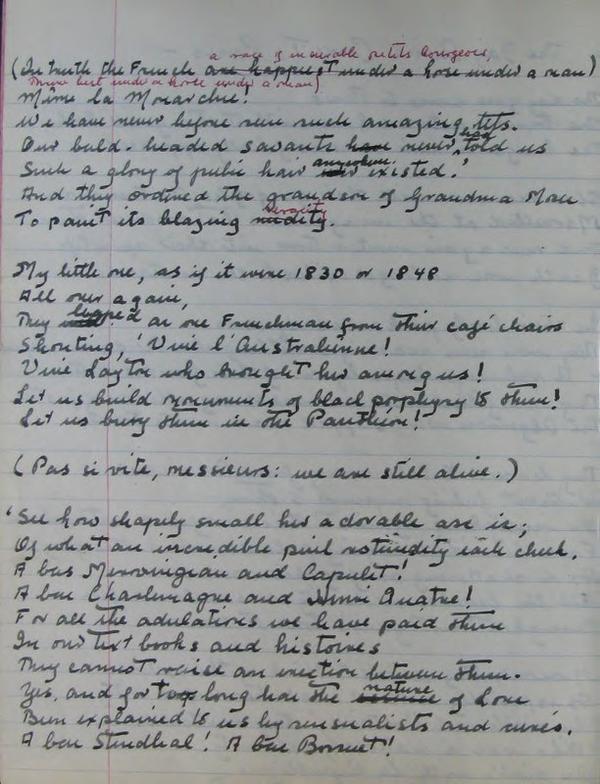 a race of incurable petits bourgeois,
(In truth the French are happiest under a horse under a man)
Thrive best under a horse under a man)
Mime la Monarchie!
We have never before seen such amazing tits.
Our bald-headed savants have never told us had
Such a glory of pubic hair anywhere existed.'
And they ordered the grandson of Grandma Moses
To paint its blazing nudity.
My little one, as if it were 1830 or 1848
All over again,
They leaped as one Frenchman from their café chairs
Shouting, 'Vive l'Australienne!
Vive Layton who brought her among us!
Let us build monuments of black porphyry to them!
Let us bury them in the Panthéon!
(Pas si vite, messieurs: we are still alive.)
'See how shapely small her adorable arse is;
Of what an incredible pink rotundity each cheek.
A bas Merovingian and Capulet!
A bas Charlemagne and Henri Quatre!
For all the adulations we have paid them
In our text books and histoires
They cannot raise an erection between them.
Yes, and for too long has the nature of Love
Been explained to us by sensualists and curés.
A bas Stendhal! A bas Bossuet!